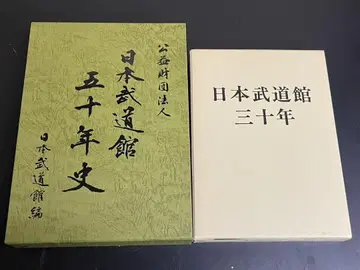 公益財団法人
日本武道館
五十年史
日本武道館編
日本武道館
三十年